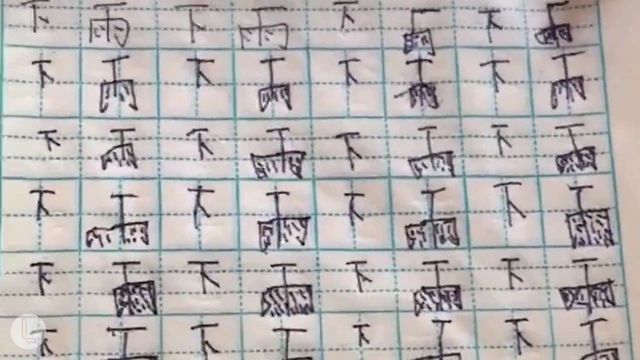 下雨下雨下雨下雨
下雨下雨下雨下雨
下雨下雨下雨下雨
下雨下雨下雨下雨
下雨下雨下雨下雨
下雨下雨下雨下雨